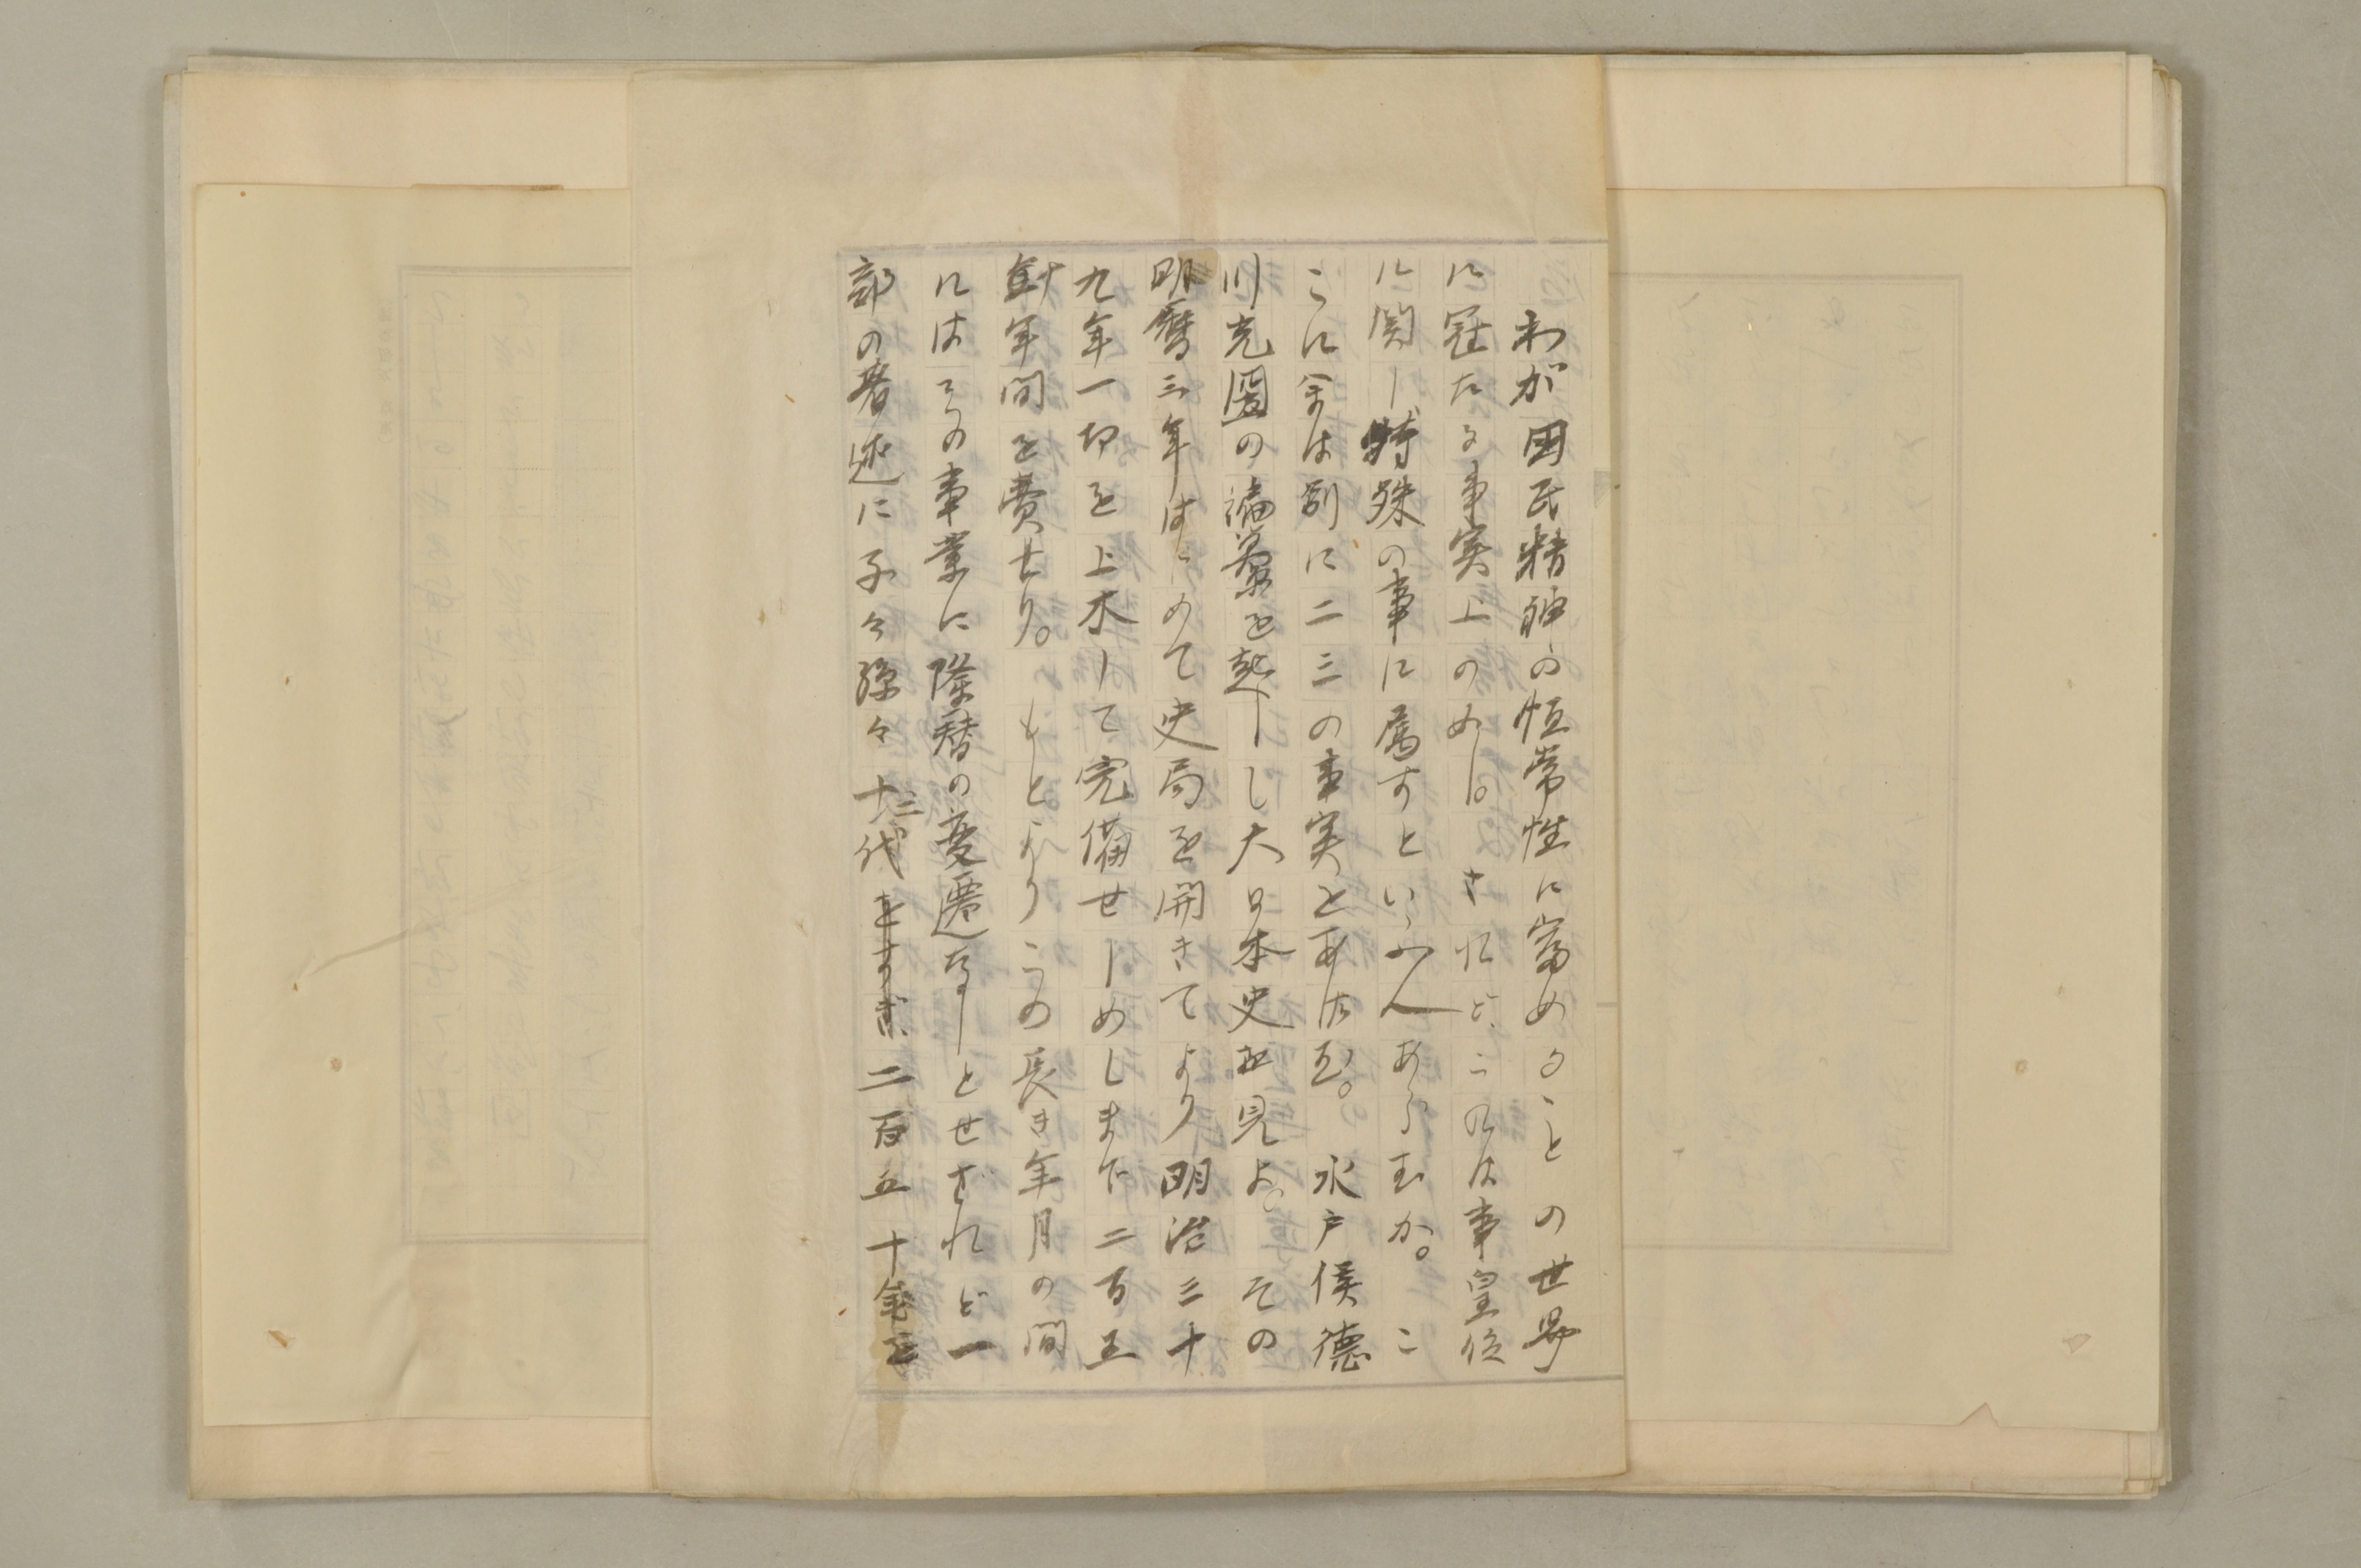 わが国民精神の恒常性に富めることの世界
に冠たる事実上の如し。されど、こは事皇位
に関し特殊の事に属すといふ人あらむか。こ
こに余は別に二三の事実をあげむ。水戸侯徳
川光圀の編纂を起しし大日本史を見よ。その
明暦三年はじめて史局を開きてより明治三十
九年一切を上木して完備せしめしまで二百五
十年間を費せり。もとよりこの長き年月の間
にはその事業に隆替の変遷なしとせざれど一
部の著述に子々孫々十三代二百五十年を